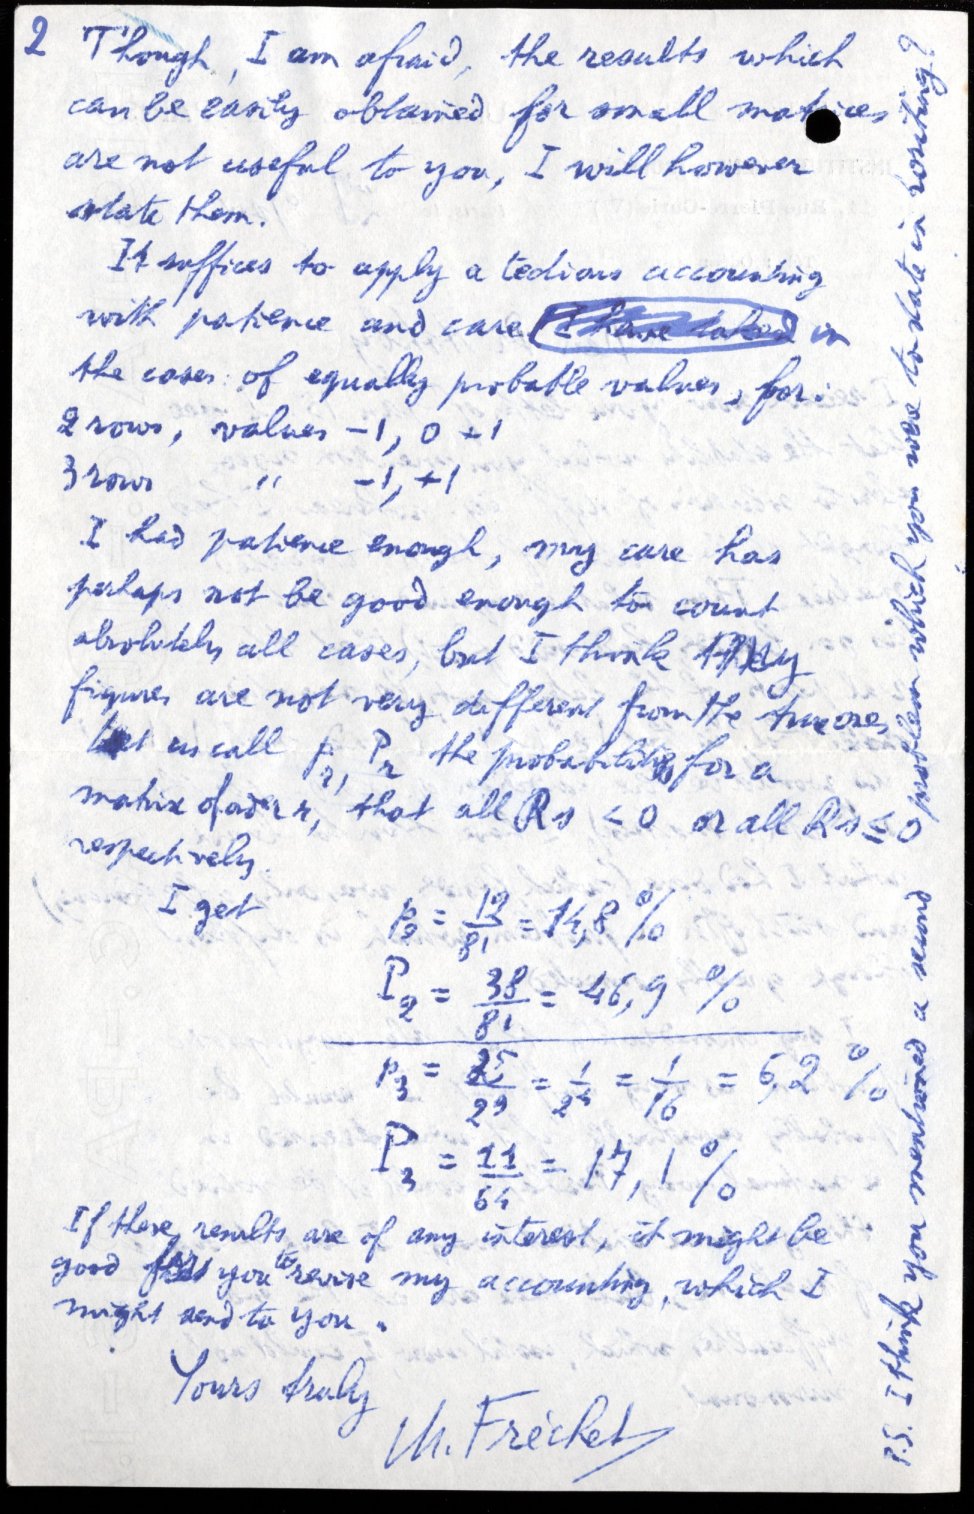 2
Though, I am afraid, the results which
can be easily obtained for small matrices
are not useful to you, I will however
state them.
It suffices to apply a tedious accounting
with patience and care I have taken in
the cases of equally probable values, for:
2 rows, values -1, 0 +1
3 rows " -1, +1
I had patience enough, my care has
perhaps not be good enough to count
absolutely all cases, but I think my
figures are not very different from the true ones
Let us call p_r, P_r the probabilities for a
matrix of order r, that all Rs < 0 or all Rs ≤ 0
respectively
I get
p_2 = 12/81 = 14,8 %
P_2 = 38/81 = 46,9 %
p_3 = 2^5/2^9 = 1/2^4 = 1/16 = 6,2 %
P_3 = 11/64 = 17,1 %
If these results are of any interest, it might be
good for you to revise my accounting, which I
might send to you.
Yours truly
M. Fréchet
P.S. I think you mentioned a second problem which you were to state in writing?